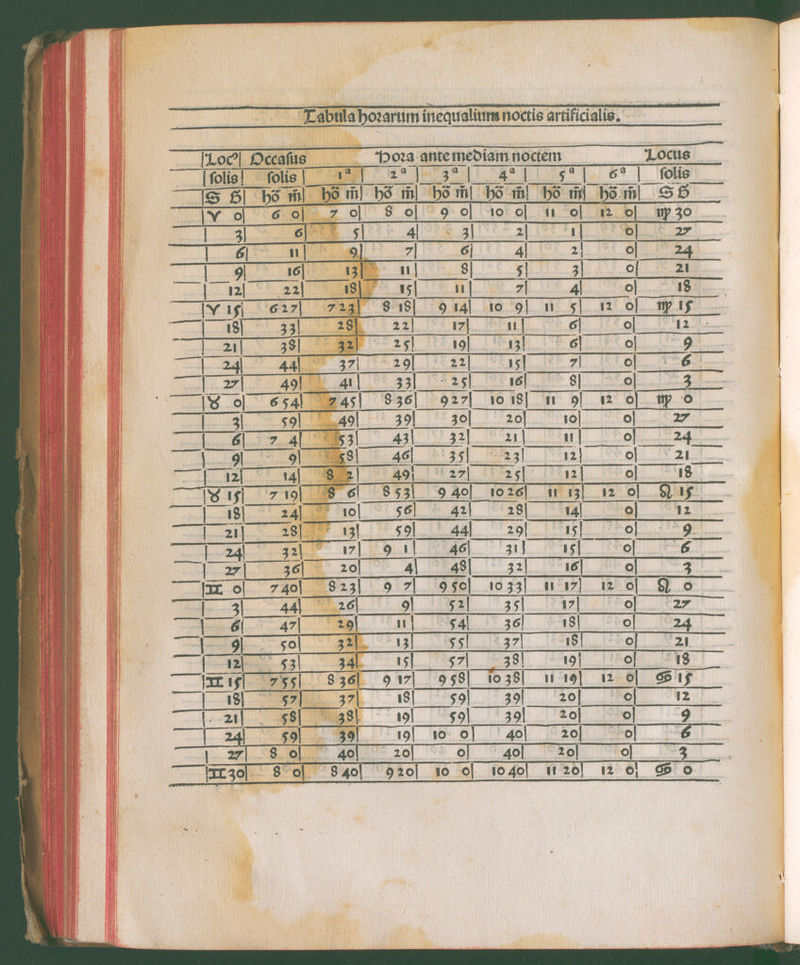 Tabula horarum inequalium noctis artificialis.
Locꝰ| Occasus Hora ante mediam noctem Locus
solis| solis | 1ª | 2ª | 3ª | 4ª | 5ª | 6ª | solis
S G| hō m̄| hō m̄| hō m̄| hō m̄| hō m̄| hō m̄| hō m̄| S G
♈ 0| 6 0| 7 0| 8 0| 9 0| 10 0| 11 0| 12 0| ♍ 30
3| 6| 5| 4| 3| 2| 1| 0| 27
6| 11| 9| 7| 6| 4| 2| 0| 24
9| 16| 13| 11| 8| 5| 3| 0| 21
12| 22| 18| 15| 11| 7| 4| 0| 18
♈ 15| 6 27| 7 23| 8 18| 9 14| 10 9| 11 5| 12 0| ♍ 15
18| 33| 28| 22| 17| 11| 6| 0| 12
21| 38| 32| 25| 19| 13| 6| 0| 9
24| 44| 37| 29| 22| 15| 7| 0| 6
27| 49| 41| 33| 25| 16| 8| 0| 3
♉ 0| 6 54| 7 45| 8 36| 9 27| 10 18| 11 9| 12 0| ♍ 0
3| 59| 49| 39| 30| 20| 10| 0| 27
6| 7 4| 53| 43| 32| 21| 11| 0| 24
9| 9| 58| 46| 35| 23| 12| 0| 21
12| 14| 8 2| 49| 27| 25| 12| 0| 18
♉ 15| 7 19| 8 6| 8 53| 9 40| 10 26| 11 13| 12 0| ♌ 15
18| 24| 10| 56| 42| 28| 14| 0| 12
21| 28| 13| 59| 44| 29| 15| 0| 9
24| 32| 17| 9 1| 46| 31| 15| 0| 6
27| 36| 20| 4| 48| 32| 16| 0| 3
♊ 0| 7 40| 8 23| 9 7| 9 50| 10 33| 11 17| 12 0| ♌ 0
3| 44| 26| 9| 52| 35| 17| 0| 27
6| 47| 29| 11| 54| 36| 18| 0| 24
9| 50| 32| 13| 55| 37| 18| 0| 21
12| 53| 34| 15| 57| 38| 19| 0| 18
♊ 15| 7 55| 8 36| 9 17| 9 58| 10 38| 11 19| 12 0| ♋ 15
18| 57| 37| 18| 59| 39| 20| 0| 12
21| 58| 38| 19| 59| 39| 20| 0| 9
24| 59| 39| 19| 10 0| 40| 20| 0| 6
27| 8 0| 40| 20| 0| 40| 20| 0| 3
♊ 30| 8 0| 8 40| 9 20| 10 0| 10 40| 11 20| 12 0| ♋ 0